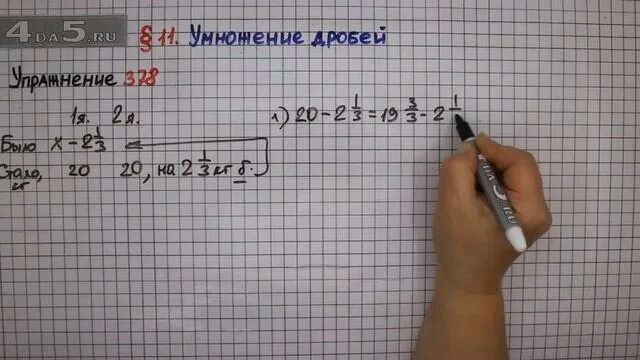 4DA5.RU
§ 11. Умножение дробей
Упражнение 378
1я. 2я.
Было x - 2 1/3
Стало, кг 20 20, на 2 1/3 кг б.
1) 20 - 2 1/3 = 19 3/3 - 2 1